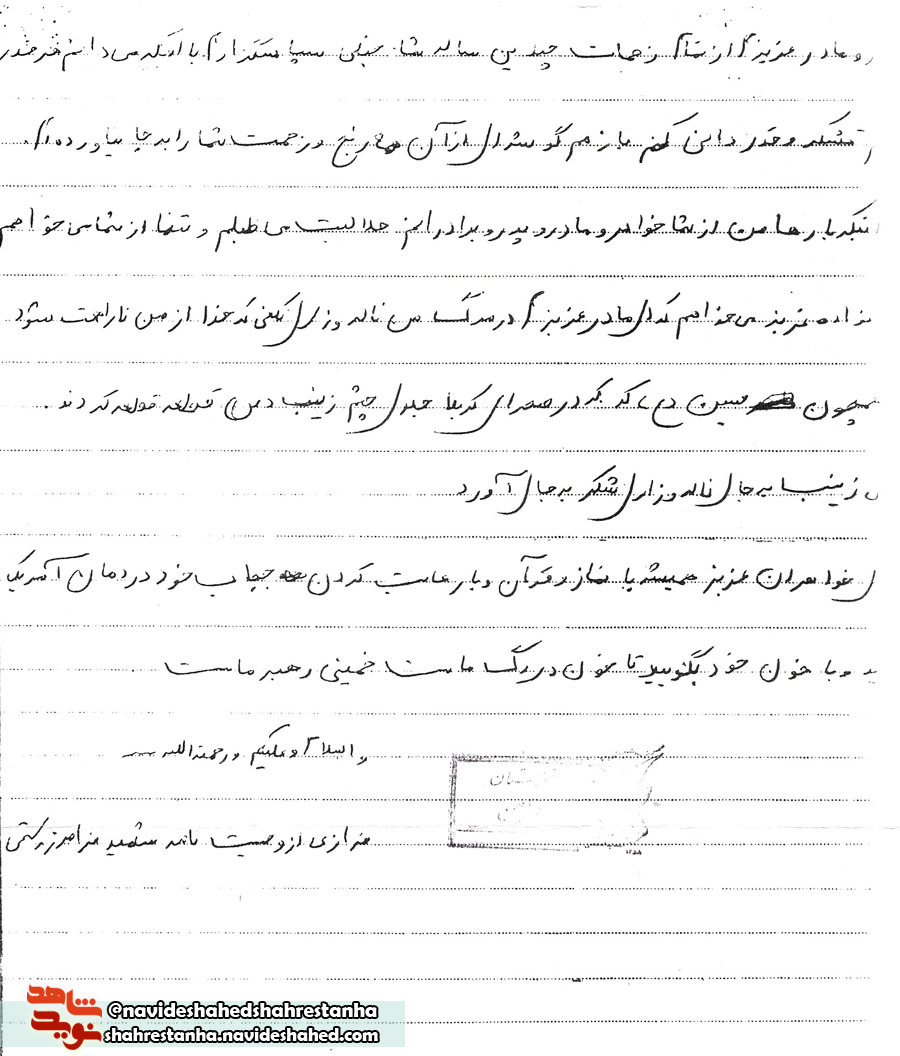 و مادر عزیزم از تمام زحمات چندین ساله شما خیلی سپاسگذارم با اینکه می دانم هر قدر
تشکر و قدردانی کنم باز هم گوشه ای از آن رنج و زحمت شما را به جا نیاورده ام.
اینکه بارها من از شما خواهر و مادر و پدر و برادرانم حلالیت می طلبم و تنها از شما می خواهم
عزیز می خواهم که ای مادر عزیزم در مرگ من ناله و زاری نکنی که خدا از من ناراحت شود
همچون حسین (ع) که در صحرای کربلا جلوی چشم زینب (س) قطعه قطعه کردند.
زینب به جای ناله و زاری شکر به جای آورد
ای خواهران عزیز همیشه با نماز و قرآن و با رعایت کردن حجاب خود در دهان آمریکا
و با خون خود بگویید تا خون در رگ ماست خمینی رهبر ماست
والسلام و علیکم و رحمة الله
فرازی از وصیت نامه شهید
شاهد
نوید
©navideshahedshahrestanha
shahrestanha.navideshahed.com